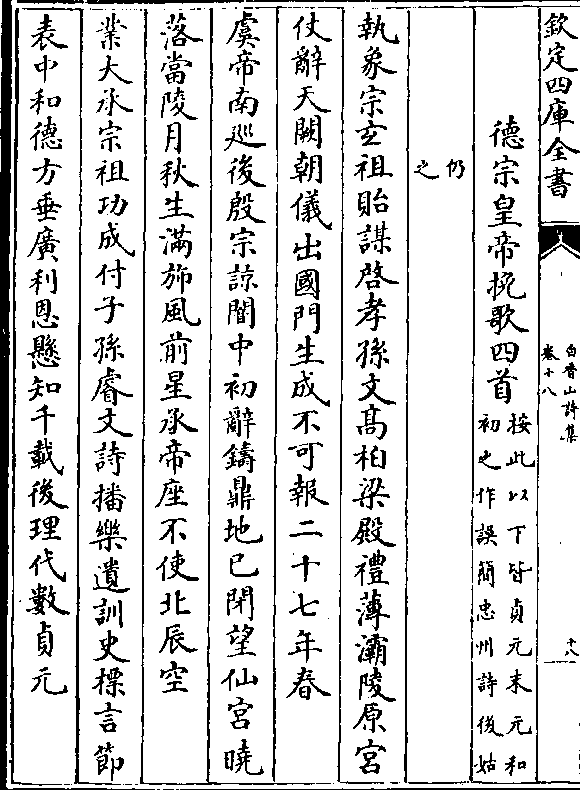 欽定四庫全書
白香山詩集
卷十八
十八
德宗皇帝挽歌四首
按此以下皆貞元末元和
初之作誤簡忠州詩後姑
仍
之
執象宗玄祖貽謀啓孝孫文髙柏梁殿禮薄灞陵原宮
仗辭天闕朝儀出國門生成不可報二十七年春
虞帝南巡後殷宗諒闇中初辭鑄鼎地已閉望仙宮曉
落當陵月秋生滿斾風前星承帝座不使北辰空
業大承宗祖功成付子孫睿文詩播樂遺訓史標言節
表中和德方垂廣利恩懸知千載後理代數貞元